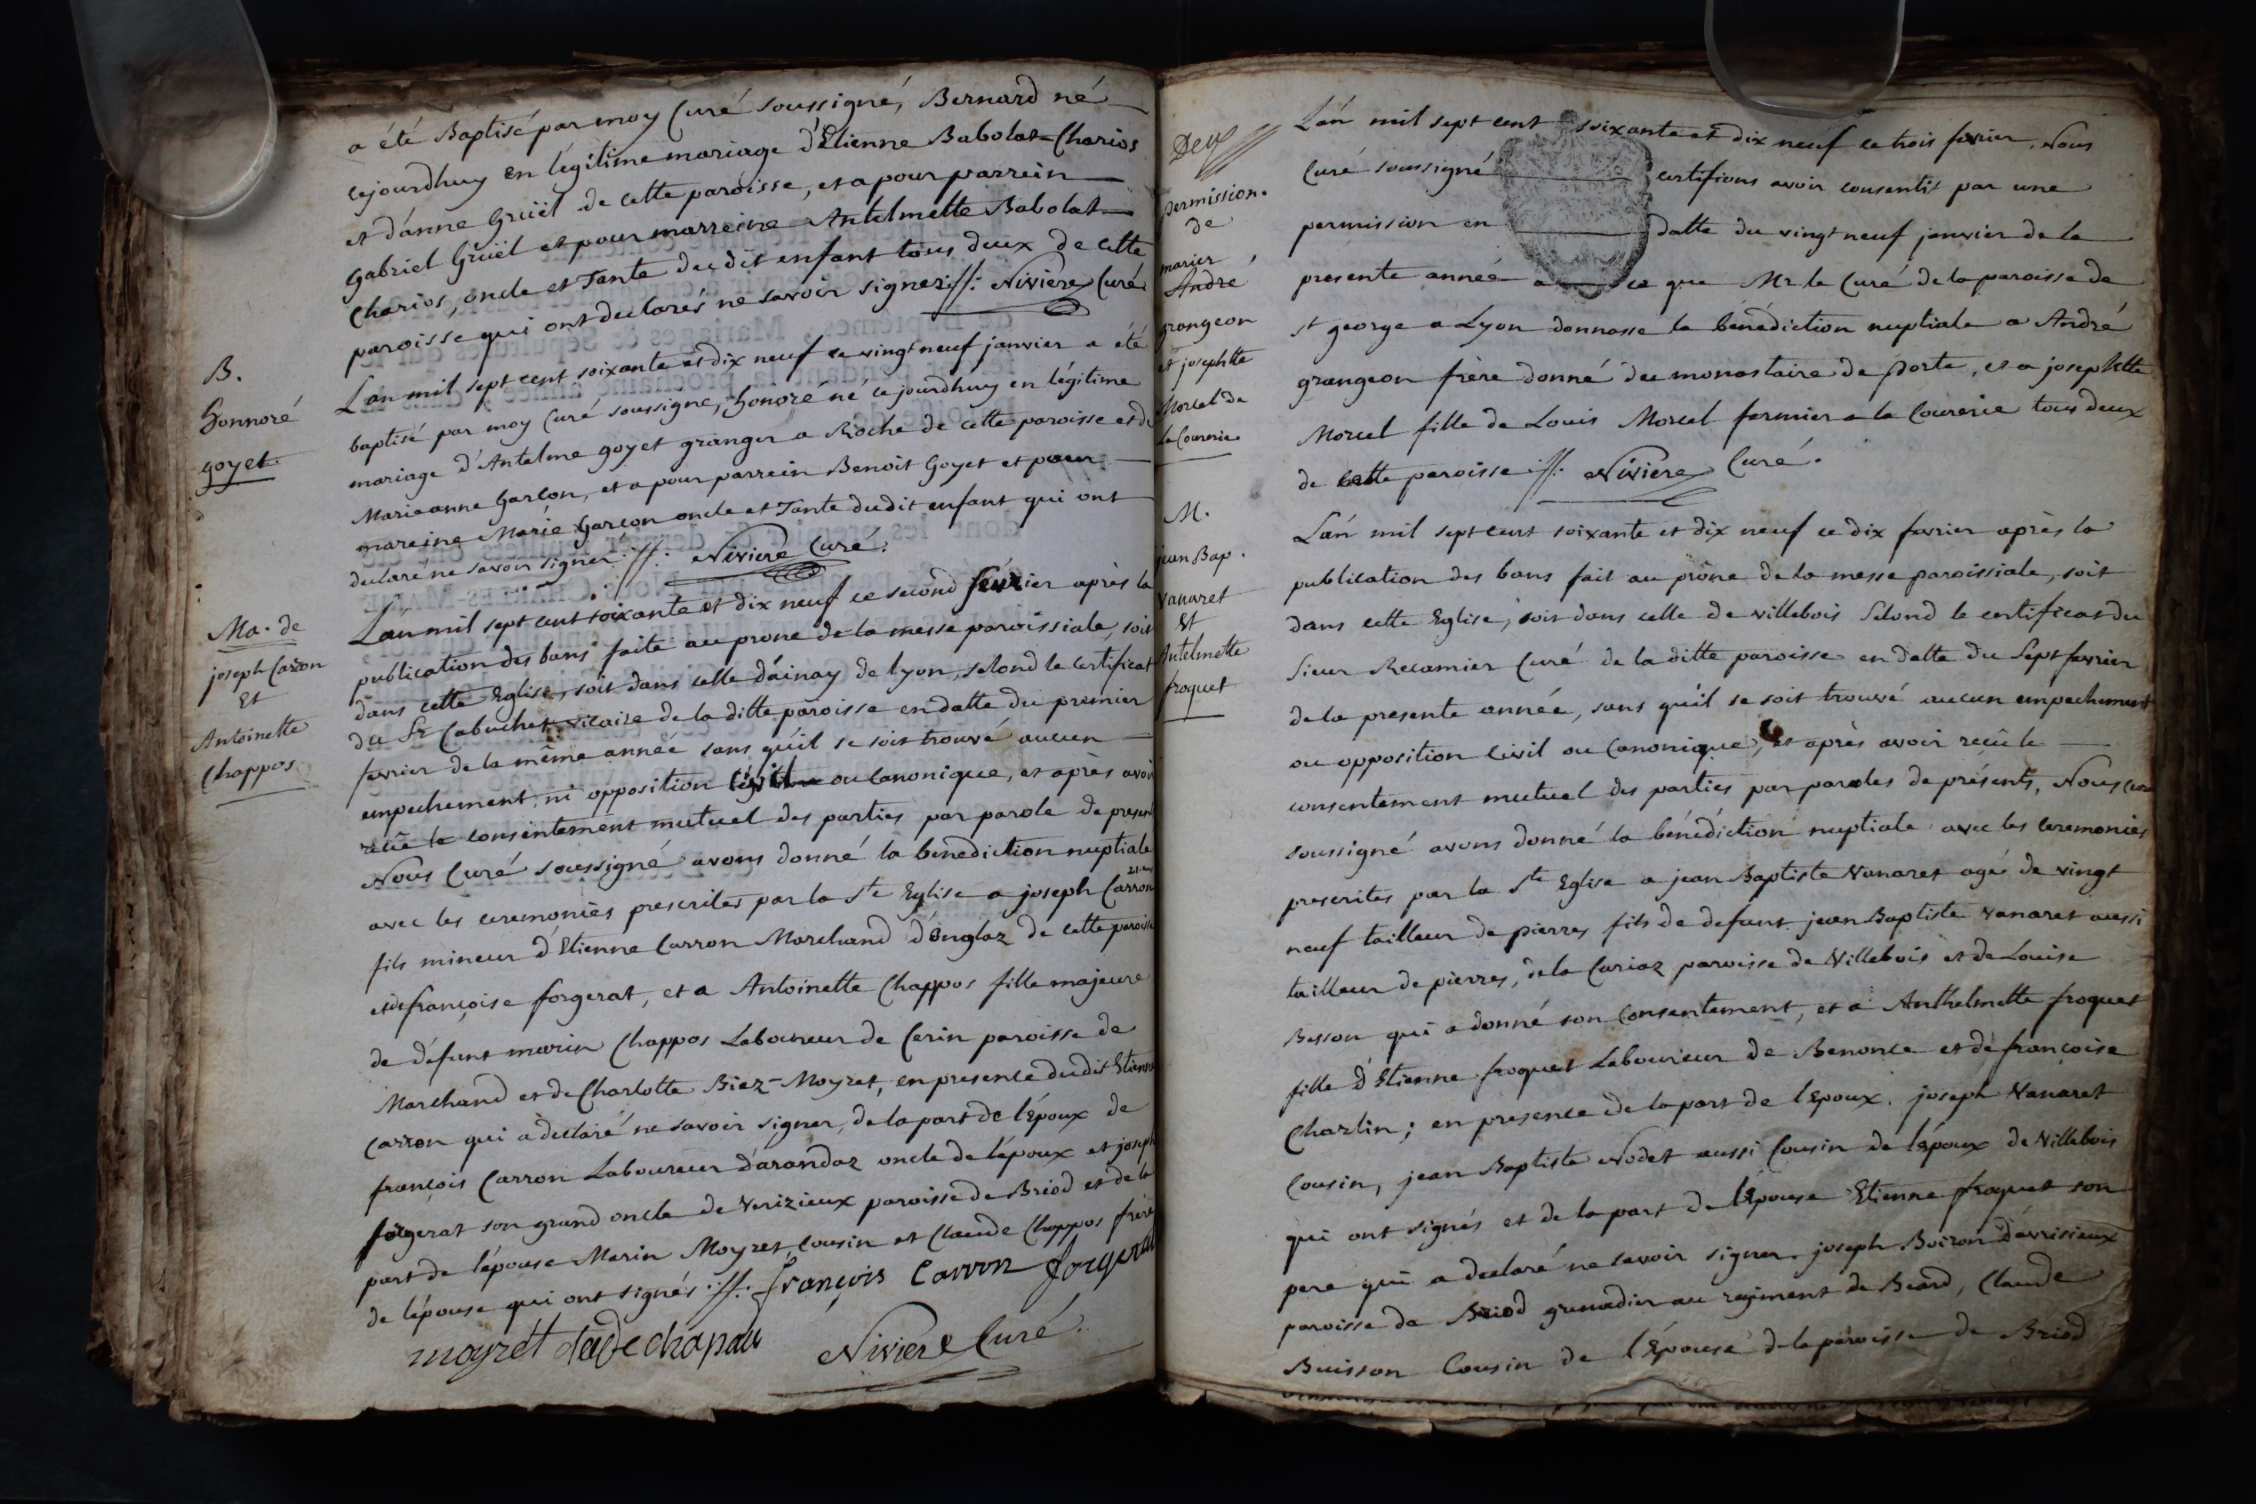 a été Baptisé par moy Curé soussigné, Bernard né
cejourdhuy en légitime mariage d'Etienne Babolat-Charios
et d'anne Gruël de cette paroisse, et a pour parrein
Gabriel Gruël et pour marreine Antelmette Babolat
Charios, oncle et Tante du dit enfant tous deux de cette
paroisse qui ont declarés ne savoir signer .//. Niviere Curé
B.
honnoré
goyet
L'an mil sept cent soixante et dix neuf ce vingt neuf janvier a été
baptisé par moy Curé soussigné, honoré né ce jourdhuy en légitime
mariage d'Antelme goyet granger a Roche de cette paroisse et de
Marieanne Garçon, et a pour parrein Benoit Goyet et pour
mareine Marie Garçon oncle et Tante dudit enfant qui ont
declaré ne savoir signer .//. Niviere Curé.
Ma. de
joseph Carron
Et
Antoinette
Chappos
L'an mil sept cent soixante et dix neuf ce second fevrier après la
publication des bans faite au prone de la messe paroissiale, soit
dans cette Eglise, soit dans celle d'ainay de lyon, selond le certificat
du Sr Cabuchet vicaire de la ditte paroisse en datte du premier
fevrier de la même année sans qu'il se soit trouvé aucun
empechement ni opposition civil ou Canonique, et après avoir
reçû le consentement mutuel des parties par parole de present
Nous Curé soussigné avons donné la benediction nuptiale
avec les ceremonies prescrites par la Ste Eglise a joseph Carron
fils mineur d'Etienne Carron Marchand d'Onglaz de cette paroisse
et de françoise forgerat, et a Antoinette Chappos fille majeure
de défunt marin Chappos Laboureur de Cerin paroisse de
Marchand et de Charlotte Biez-Moyret, en presence dudit Etienne
Carron qui a declaré ne savoir signer, de la part de l'Époux de
françois Carron Laboureur d'arandaz oncle de l'époux et joseph
forgerat son grand oncle de Verizieux paroisse de Briod et de la
part de l'épouse Marin Moyret Cousin et Claude Chappos frère
de l'épouse qui ont signés .//. françois Carron forgerat
moyret Niviere Curé.
permission
de
marier
André
grangeon
et josephtte
Morcel de
la Courerie
L'an mil sept cent soixante et dix neuf ce trois fevrier, Nous
Curé soussigné certifions avoir consentit par une
permission en datte du vingt neuf janvier de la
presente année a ce que Mr le Curé de la paroisse de
st george a Lyon donnasse la bénédiction nuptiale a André
grangeon frère donné du monastaire de porte, et a josephtte
Morcel fille de Louis Morcel fermier a la Courerie tous deux
de cette paroisse .//. Niviere Curé.
M.
jean Bap.
Vanaret
Et
Antelmette
froquet
L'an mil sept cent soixante et dix neuf ce dix fevrier après la
publication des bans fait au prône de la messe paroissiale, soit
dans cette Eglise, soit dans celle de villebois Selond le certificat du
Sieur Recamier Curé de la ditte paroisse en datte du Sept fevrier
de la presente année, sans qu'il se soit trouvé aucun empechement
ou opposition Civil ou Canonique, et après avoir reçû le
consentement mutuel des parties par paroles de présents, Nous Curé
soussigné avons donné la bénédiction nuptiale avec les ceremonies
prescrites par la Ste Eglise a jean Baptiste Vanaret agé de vingt
neuf tailleur de pierres fils de defunt jean Baptiste Vanaret aussi
tailleur de pierres, de la Cariaz paroisse de Villebois et de Louise
Besson qui a donné son Consentement, et a Anthelmette froquet
fille d'Etienne froquet Laboureur de Benonce et de françoise
Charlin; en presence de la part de l'Epoux. joseph Vanaret
Cousin, jean Baptiste Nodet aussi Cousin de l'époux de Villebois
qui ont signés et de la part de l'Épouse Etienne froquet son
pere qui a declaré ne savoir signer. joseph Boiron d'avrisieux
paroisse de Briod grenadier au regiment de Beard, Claude
Buisson Cousin de l'Épouse de la paroisse de Briod